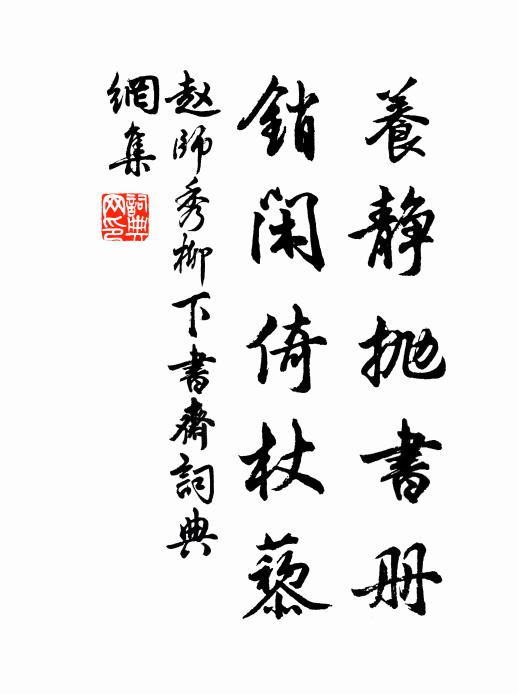 養静抛書册
銷閑倚杖藜
赵師秀柳下書齋詞典
網集
詞典网印